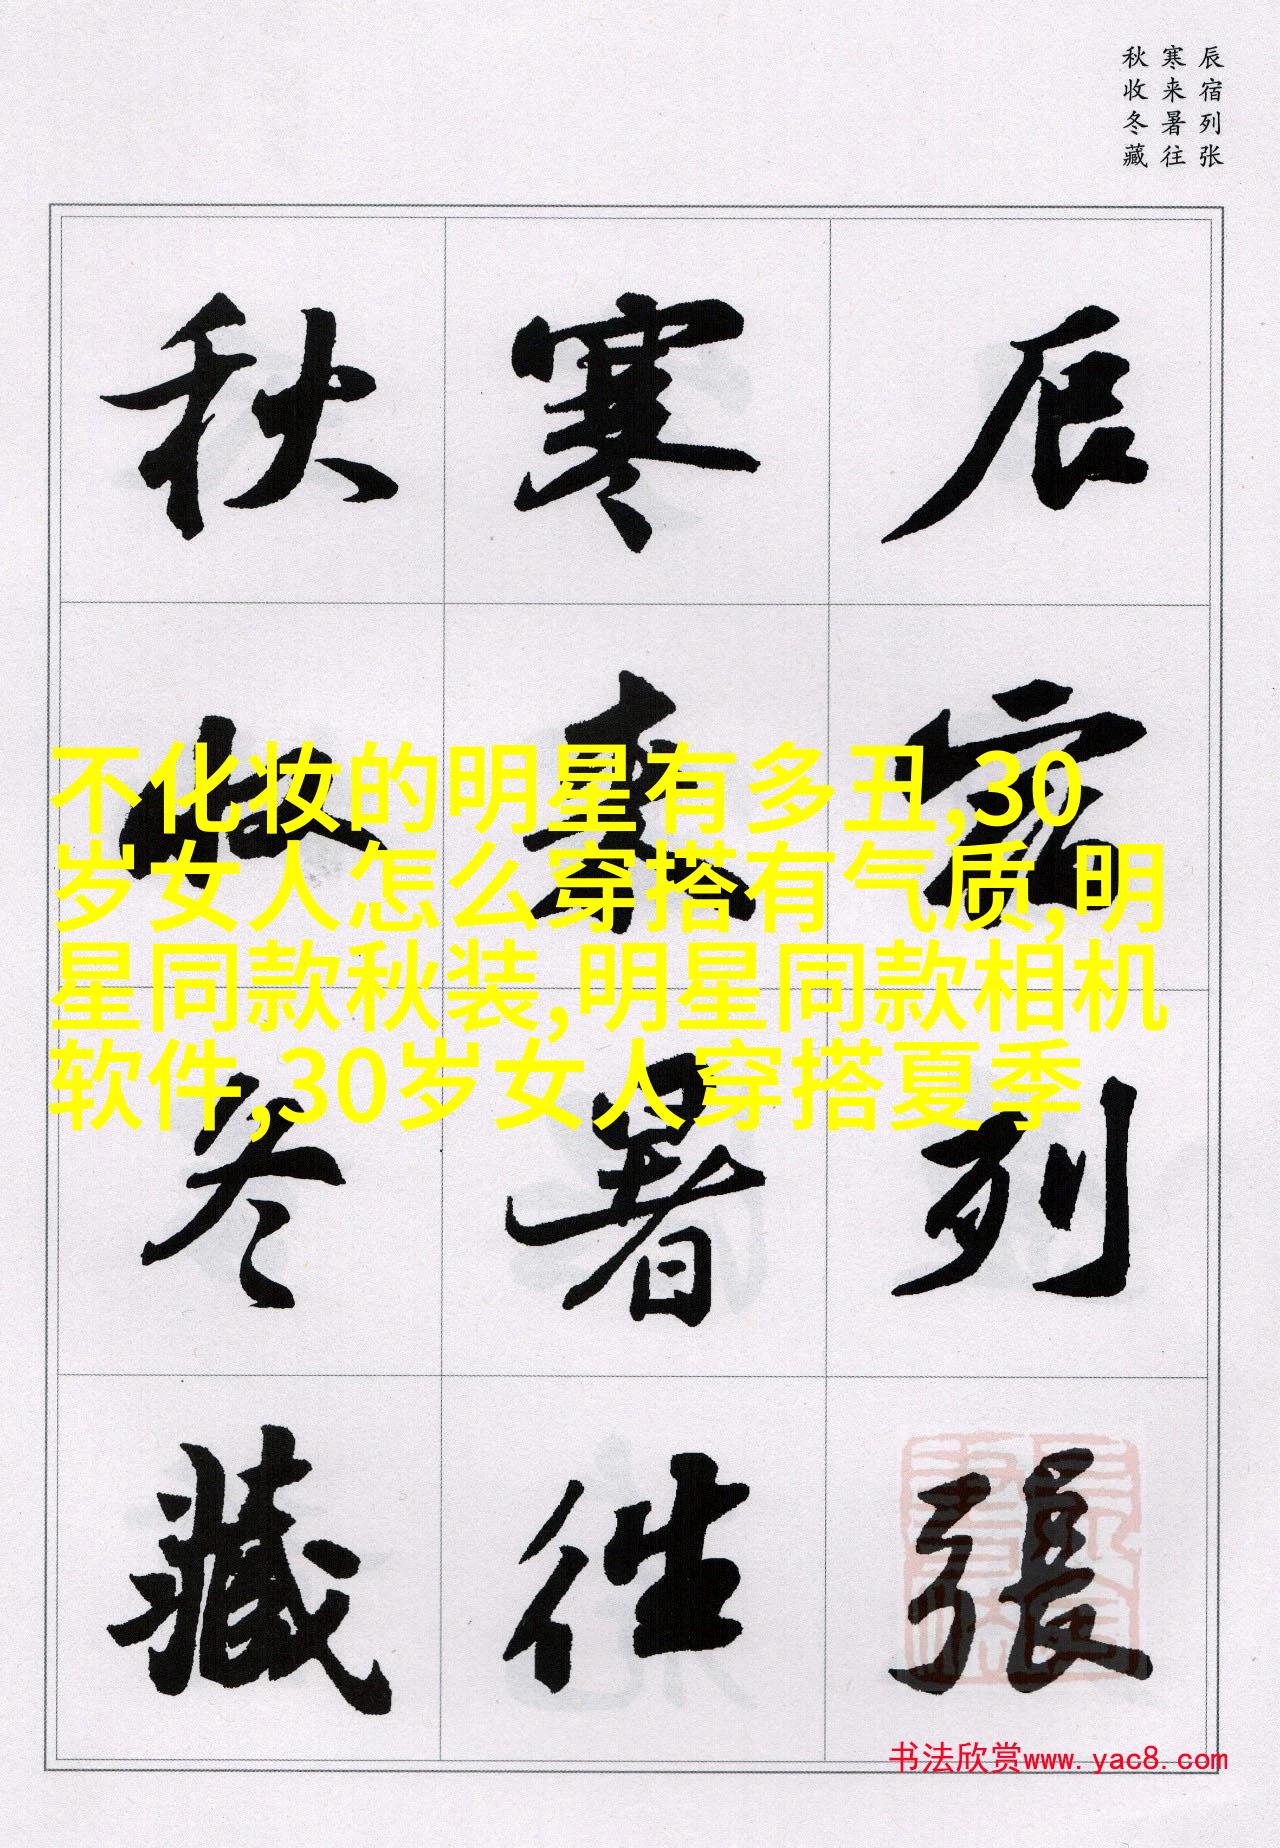 辰宿列张
寒来暑往
秋收冬藏
辰宿列張
寒来暑往
秋收冬藏
不化妆的明星有多丑,30
岁女人怎么穿搭有气质,明
星同款秋装,明星同款相机
软件,30岁女人穿搭夏季
书法欣赏www.yac8.com